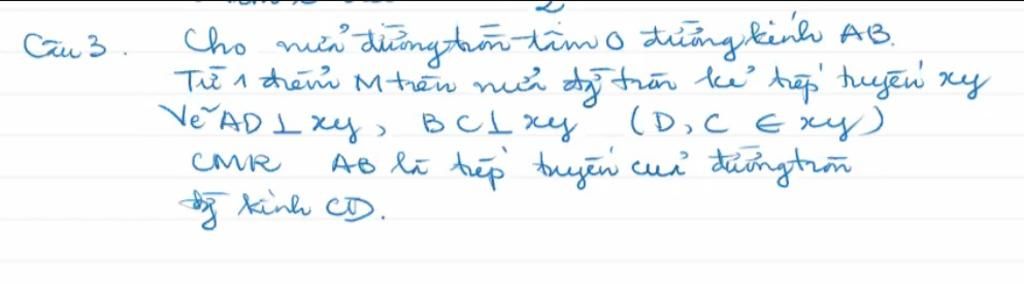 Câu 3. Cho nửa đường tròn tâm O đường kính AB.
Từ 1 điểm M trên nửa đg tròn kẻ tiếp tuyến xy
Vẽ AD ⊥ xy, BC ⊥ xy (D, C ∈ xy)
CMR AB là tiếp tuyến của đường tròn
đg kính CD.